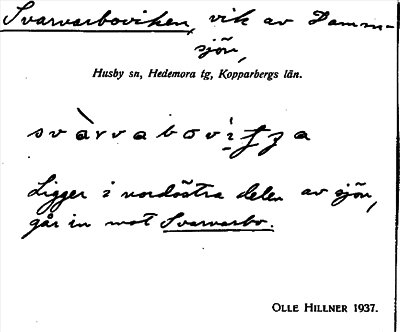 Svarvarboviken, vik av Damm-
sjön,
Husby sn, Hedemora tg, Kopparbergs län.
Ligger i nordöstra delen av sjön,
går in mot Svarvarbo.
OLLE HILLNER 1937.